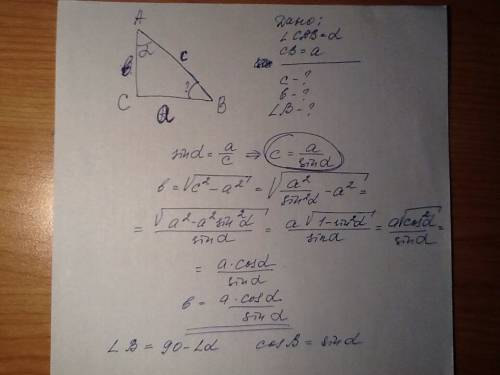 A
α
c
в
C
a
?
B
Дано:
∠CAB=α
CB=a
c-?
в-?
∠B-?
sinα = a/c ⇒ c = a/sinα
в = √(c²-a²) = √(a²/sin²α - a²) =
= √(a²-a²sin²α)/sinα = a√(1-sin²α)/sinα = a√(cos²α)/sinα =
= a·cosα/sinα
в = a·cosα/sinα
∠B = 90-∠α cosB = sinα